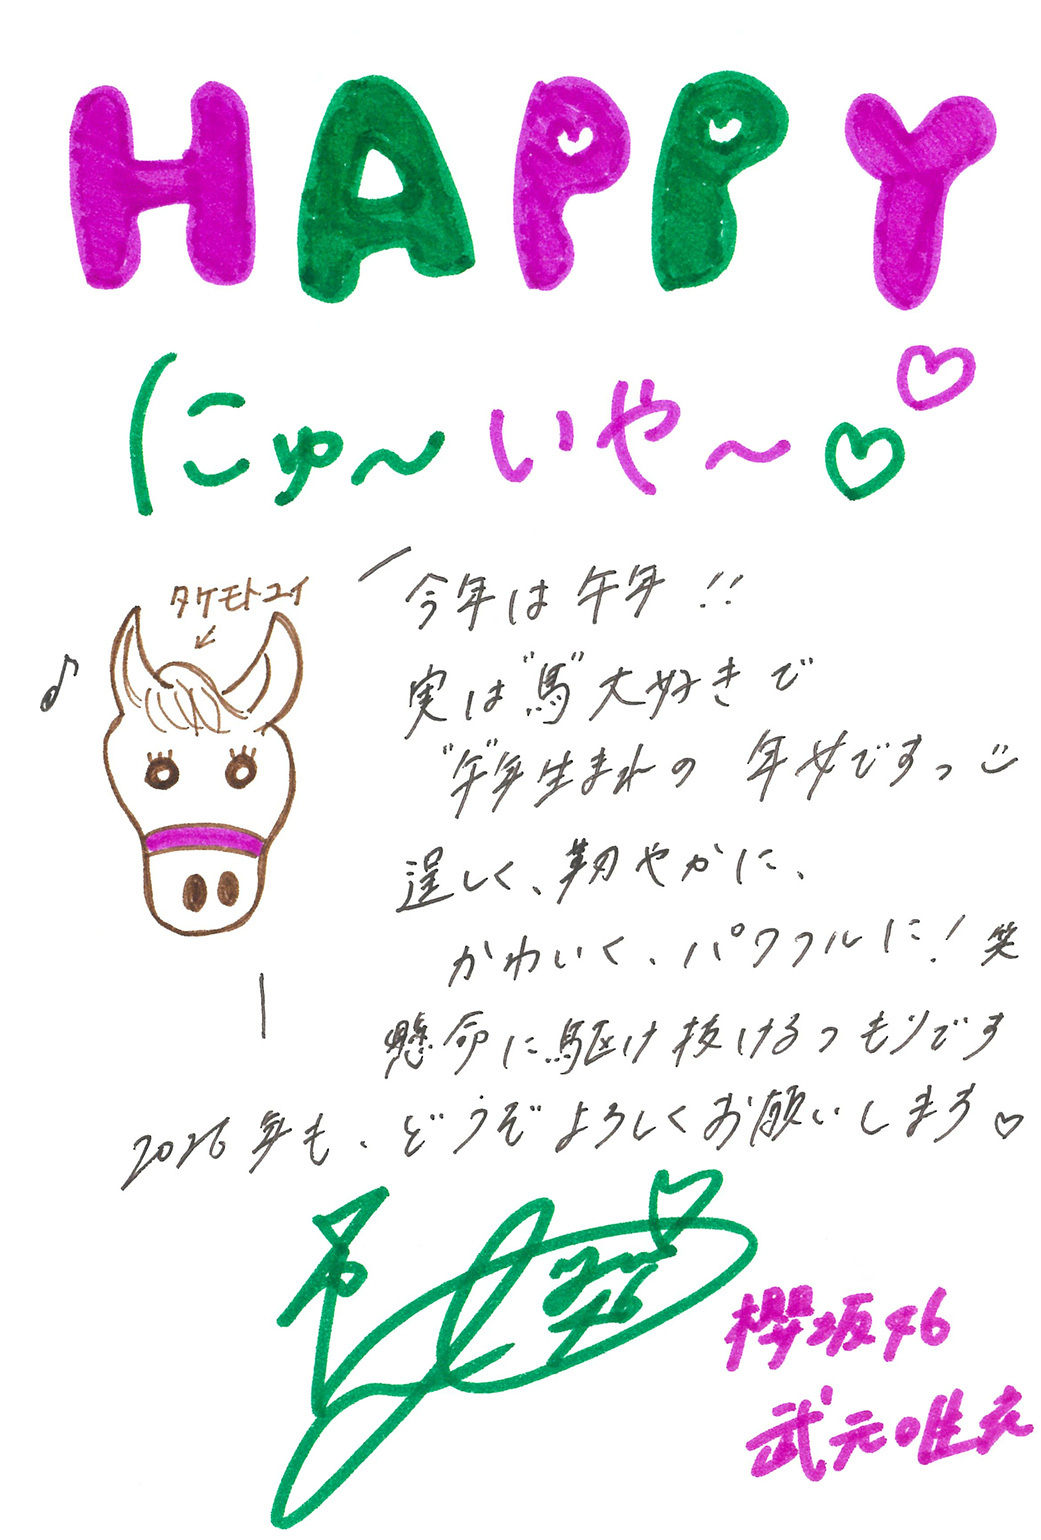 HAPPY
にゅ〜いや〜♡♡
タケモトユイ
♪
今年は午年!!
実は"馬"大好きで
"午"年生まれの 年女ですっ
逞しく、靭やかに、
かわいく、パワフルに!笑
懸命に駆け抜けるつもりです
2026年も、どうぞよろしくお願いします♡
櫻坂46
武元唯衣